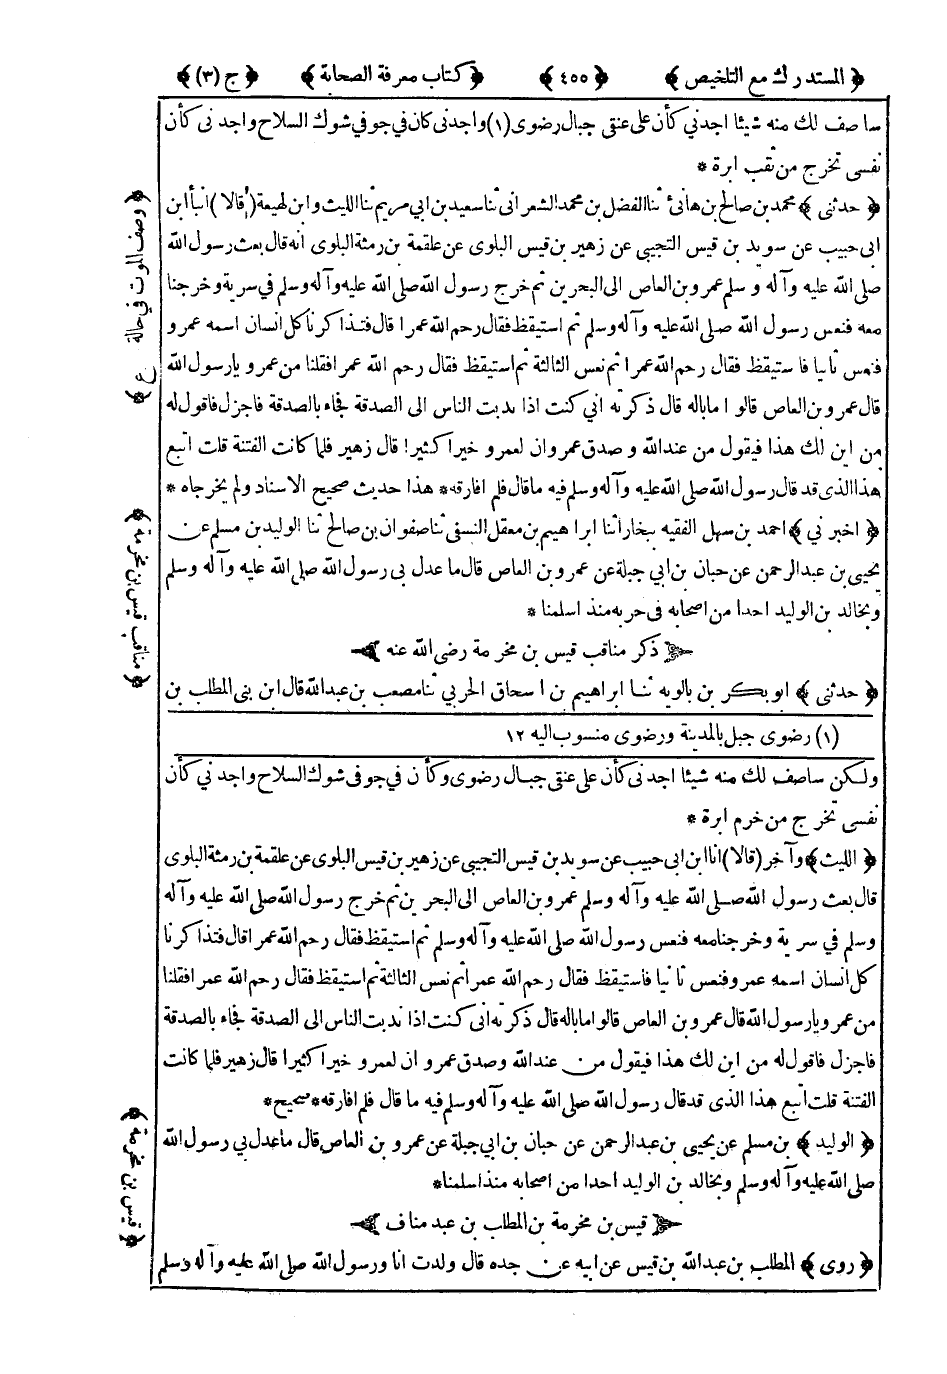 ﴿ المستدرك مع التلخيص ﴾ ﴿ ٤٥٥ ﴾ ﴿ كتاب معرفة الصحابة ﴾ ﴿ ج (٣) ﴾
ساصف لك منه شيئا اجدني كأن على عنقي جبال رضوى (١) واجدنى كان في جوفي شوك السلاح واجد نى كأن
نفسى تخرج من ثقب ابرة *
﴿ حدثنى ﴾ محمد بن صالح بن هانئ ثنا الفضل بن محمد الشعرانى ثنا سعيد بن ابى مريم ثنا الليث وابن لهيعة (قالا) انبأ ابن
ابى حبيب عن سويد بن قيس التجيبي عن زهير بن قيس البلوى عن علقمة بن رمثة البلوى انه قال بعث رسول الله
صلى الله عليه وآله وسلم عمرو بن العاص الى البحرين ثم خرج رسول الله صلى الله عليه وآله وسلم في سرية وخرجنا
معه فنعس رسول الله صلى الله عليه وآله وسلم ثم استيقظ فقال رحم الله عمرا قال فتذاكرنا كل انسان اسمه عمرو
فنعس ثانيا فاستيقظ فقال رحم الله عمرا ثم نعس الثالثة ثم استيقظ فقال رحم الله عمرا فقلنا من عمرو يا رسول الله
قال عمرو بن العاص قالوا ما باله قال ذكرته انى كنت اذا ندبت الناس الى الصدقة فجاء بالصدقة فاجزل فاقول له
من اين لك هذا فيقول من عند الله وصدق عمرو ان لعمرو خيرا كثيرا قال زهير فلما كانت الفتنة قلت اتبع
هذا الذى قد قال رسول الله صلى الله عليه وآله وسلم فيه ما قال فلم افارقه * هذا حديث صحيح الاسناد ولم يخرجاه *
﴿ اخبرني ﴾ احمد بن سهل الفقيه ببخارا ثنا ابراهيم بن معقل النسفى ثنا صفوان بن صالح ثنا الوليد بن مسلم عن
يحيى بن عبدالرحمن عن حبان بن ابي جبلة عن عمرو بن العاص قال ما عدل بى رسول الله صلى الله عليه وآله وسلم
وبخالد بن الوليد احدا من اصحابه فى حربه منذ اسلمنا *
﴿ ذكر مناقب قيس بن مخرمة رضى الله عنه ﴾
﴿ حدثنى ﴾ ابو بكر بن بالويه ثنا ابراهيم بن اسحاق الحربي ثنا مصعب بن عبدالله قال ابن بنى المطلب بن
(١) رضوى جبل بالمدينة ورضوى منسوب اليه ١٢
ولكن ساصف لك منه شيئا اجدنى كأن على عنقى جبال رضوى وكأن في جوفى شوك السلاح واجدني كأن
نفسى تخرج من خرم ابرة *
﴿ الليث ﴾ وآخر (قالا) انا ابن ابى حبيب عن سويد بن قيس التجيبى عن زهير بن قيس البلوى عن علقمة بن رمثة البلوى
قال بعث رسول الله صلى الله عليه وآله وسلم عمرو بن العاص الى البحرين ثم خرج رسول الله صلى الله عليه وآله
وسلم في سرية وخرجنا معه فنعس رسول الله صلى الله عليه وآله وسلم ثم استيقظ فقال رحم الله عمرا قال فتذاكرنا
كل انسان اسمه عمرو فنعس ثانيا فاستيقظ فقال رحم الله عمرا ثم نعس الثالثة ثم استيقظ فقال رحم الله عمرا فقلنا
من عمرو يا رسول الله قال عمرو بن العاص قالوا ما باله قال ذكرته انى كنت اذا ندبت الناس الى الصدقة فجاء بالصدقة
فاجزل فاقول له من اين لك هذا فيقول من عند الله وصدق عمرو ان لعمرو خيرا كثيرا قال زهير فلما كانت
الفتنة قلت اتبع هذا الذى قد قال رسول الله صلى الله عليه وآله وسلم فيه ما قال فلم افارقه * صحيح *
﴿ الوليد ﴾ بن مسلم عن يحيى بن عبدالرحمن عن حبان بن ابى جبلة عن عمرو بن العاص قال ما عدل بي رسول الله
صلى الله عليه وآله وسلم وبخالد بن الوليد احدا من اصحابه منذ اسلمنا *
﴿ قيس بن مخرمة بن المطلب بن عبد مناف ﴾
﴿ روى ﴾ المطلب بن عبدالله بن قيس عن ابيه عن جده قال ولدت انا ورسول الله صلى الله عليه وآله وسلم
﴿ وصف الموت في حالة ﴾
﴿ مناقب قيس بن مخرمة ﴾
﴿ قيس بن مخرمة ﴾